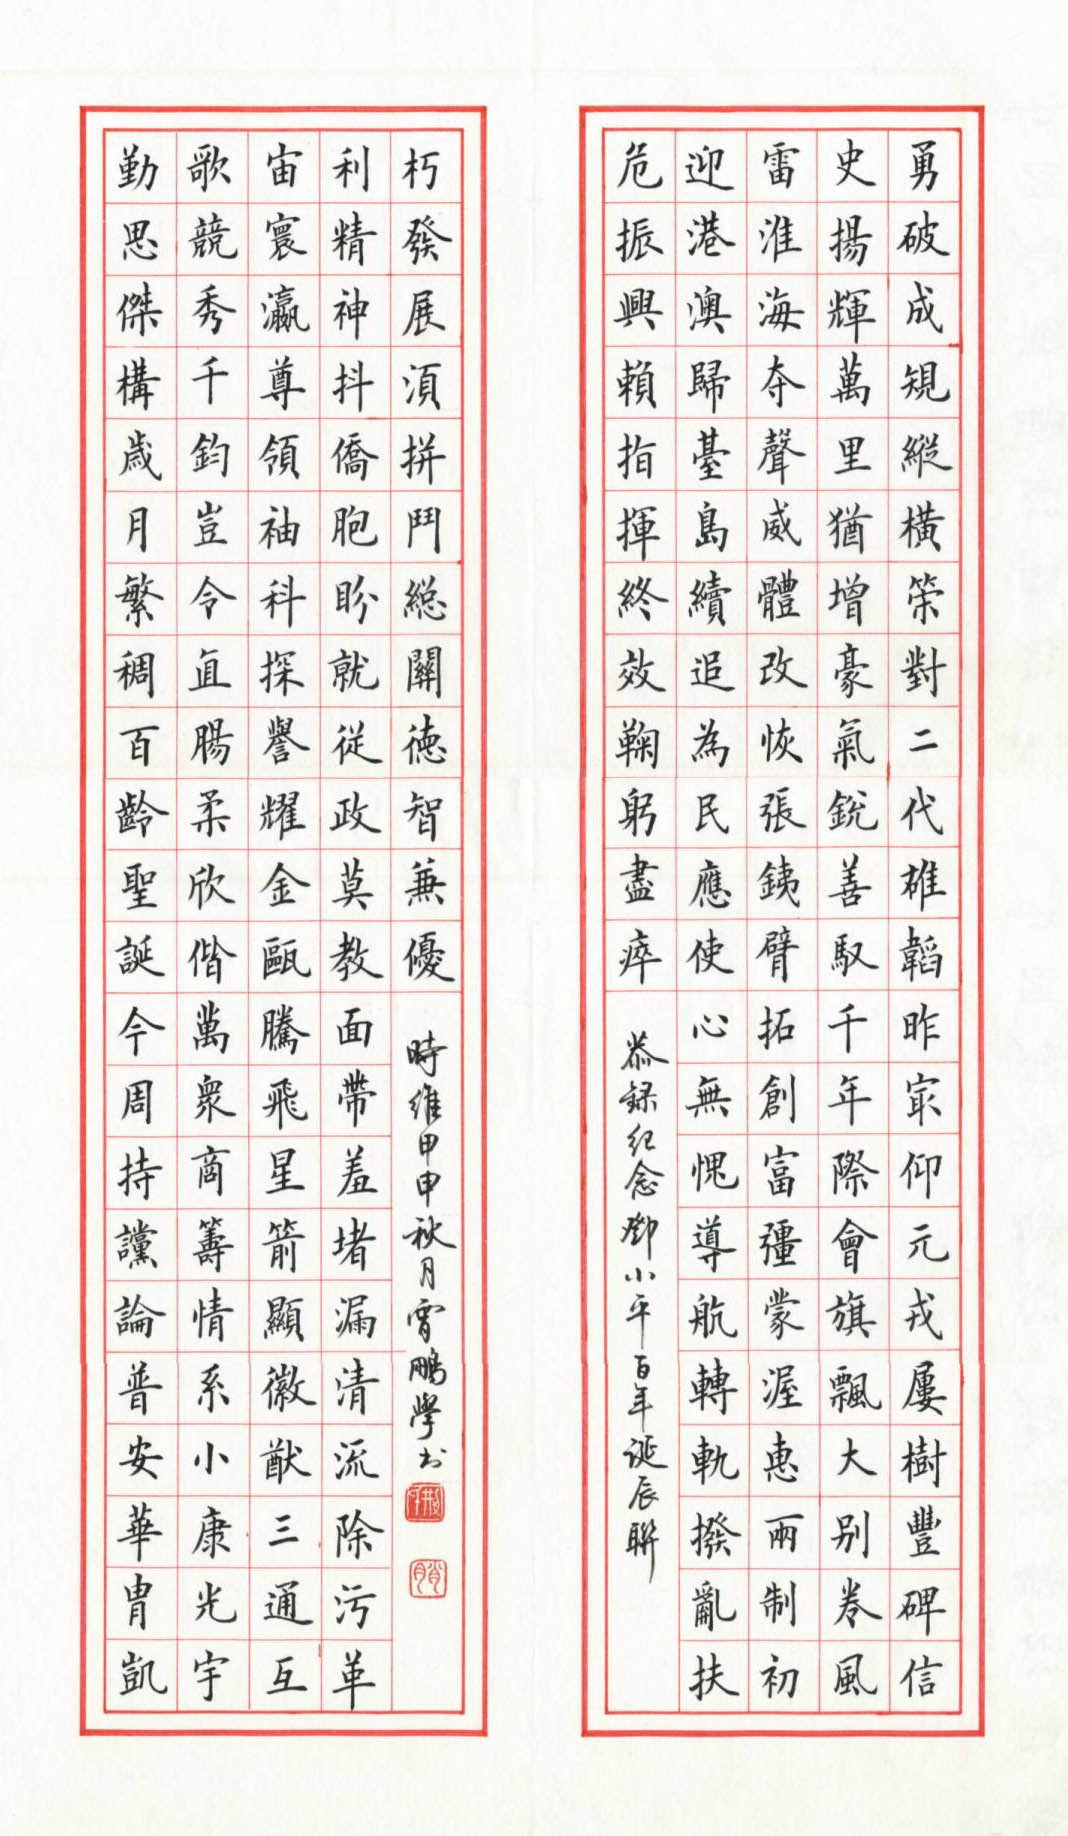 勇破成規縱橫策對二代雄韜昨冣仰元戎屢樹豐碑信
史揚輝萬里猶增豪氣銳善馭千年際會旗飄大别卷風
雷淮海夺聲威體改恢張銕臂拓創富彊蒙渥惠兩制初
迎港澳歸臺島續追為民應使心無愧導航轉軌撥亂扶
危振興賴指揮終效鞠躬盡瘁
恭録紀念鄧小平百年诞辰聯
勤思傑構歲月繁稠百齡聖誕今周持讜論普安華胄凱
歌競秀千鈞豈令直腸柔欣偕萬衆商籌情系小康光宇
宙寰瀛尊領袖科探譽耀金甌騰飛星箭顯徽猷三通互
利精神抖僑胞盼就從政莫教面帶羞堵漏清流除污革
朽發展須拼鬥總關德智兼優
時維甲申秋月霄鵬學书